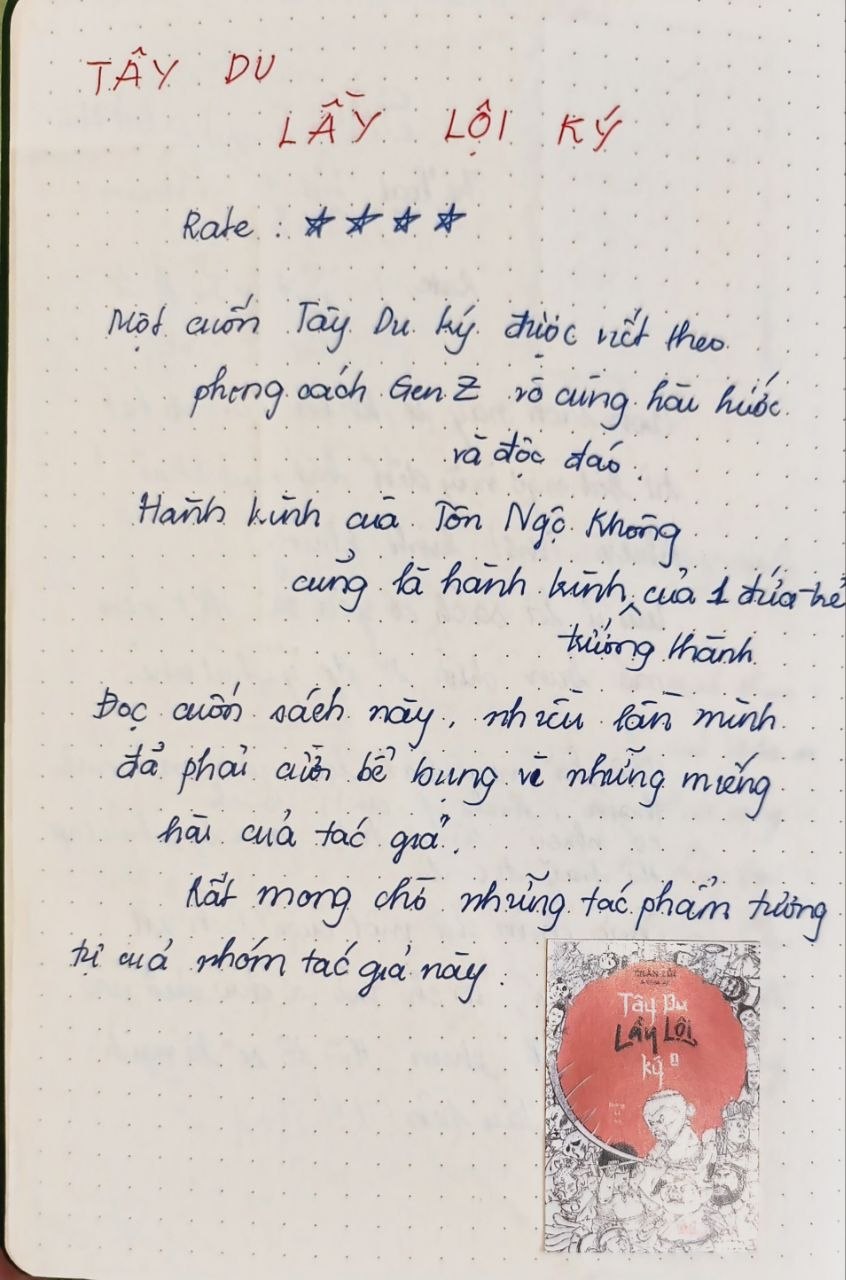 TÂY DU
LẦY LỘI KÝ
Rate : ★ ★ ★ ★
Một cuốn Tây Du ký được viết theo
phong cách Gen Z vô cùng hài hước
và độc đáo.
Hành trình của Tôn Ngộ Không
cũng là hành trình của 1 đứa trẻ
trưởng thành
Đọc cuốn sách này, nhiều lần mình
đã phải cười bể bụng vì những miếng
hài của tác giả.
Rất mong chờ những tác phẩm tương
tự của nhóm tác giả này.
Tây Du
Lầy Lội
ký 1